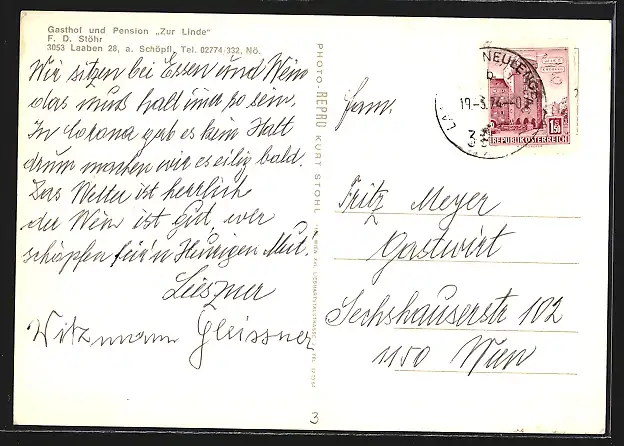 Gasthof und Pension „Zur Linde"
F. D. Stöhr
3053 Laaben 28, a. Schöpfl, Tel. 02774/332, Nö.
Wir sitzen bei Essen und Wein
das muß halt so sein.
In Corona gab es kein Halt
drum machen wir es eilig bald.
Das Wetter ist herrlich
der Wein ist gut, wir
schöpfen für'n Heurigen Mut!
Witzmann Gleissner
PHOTO-REPRO KURT STOHL
NEULENGB
19-3.74
REPUBLIK ÖSTERREICH
1.50
Fam.
Fritz Meyer
Gastwirt
Sechshauserstr 102
1150 Wien
3